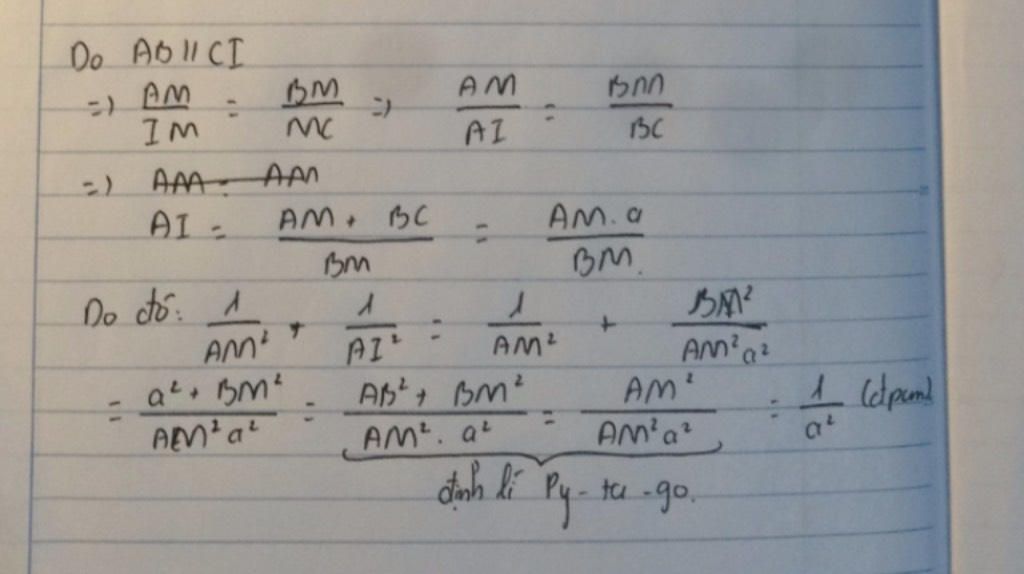 Do AB // CI
=> AM/IM = BM/MC => AM/AI = BM/BC
=> AM = AM
AI = (AM . BC)/BM = (AM . a)/BM.
Do đó: 1/AM² + 1/AI² = 1/AM² + BM²/(AM² a²)
= (a² + BM²)/(AM² a²) = (AB² + BM²)/(AM² . a²) = AM²/(AM² a²) = 1/a² (đpcm)
định lí Py-ta-go.